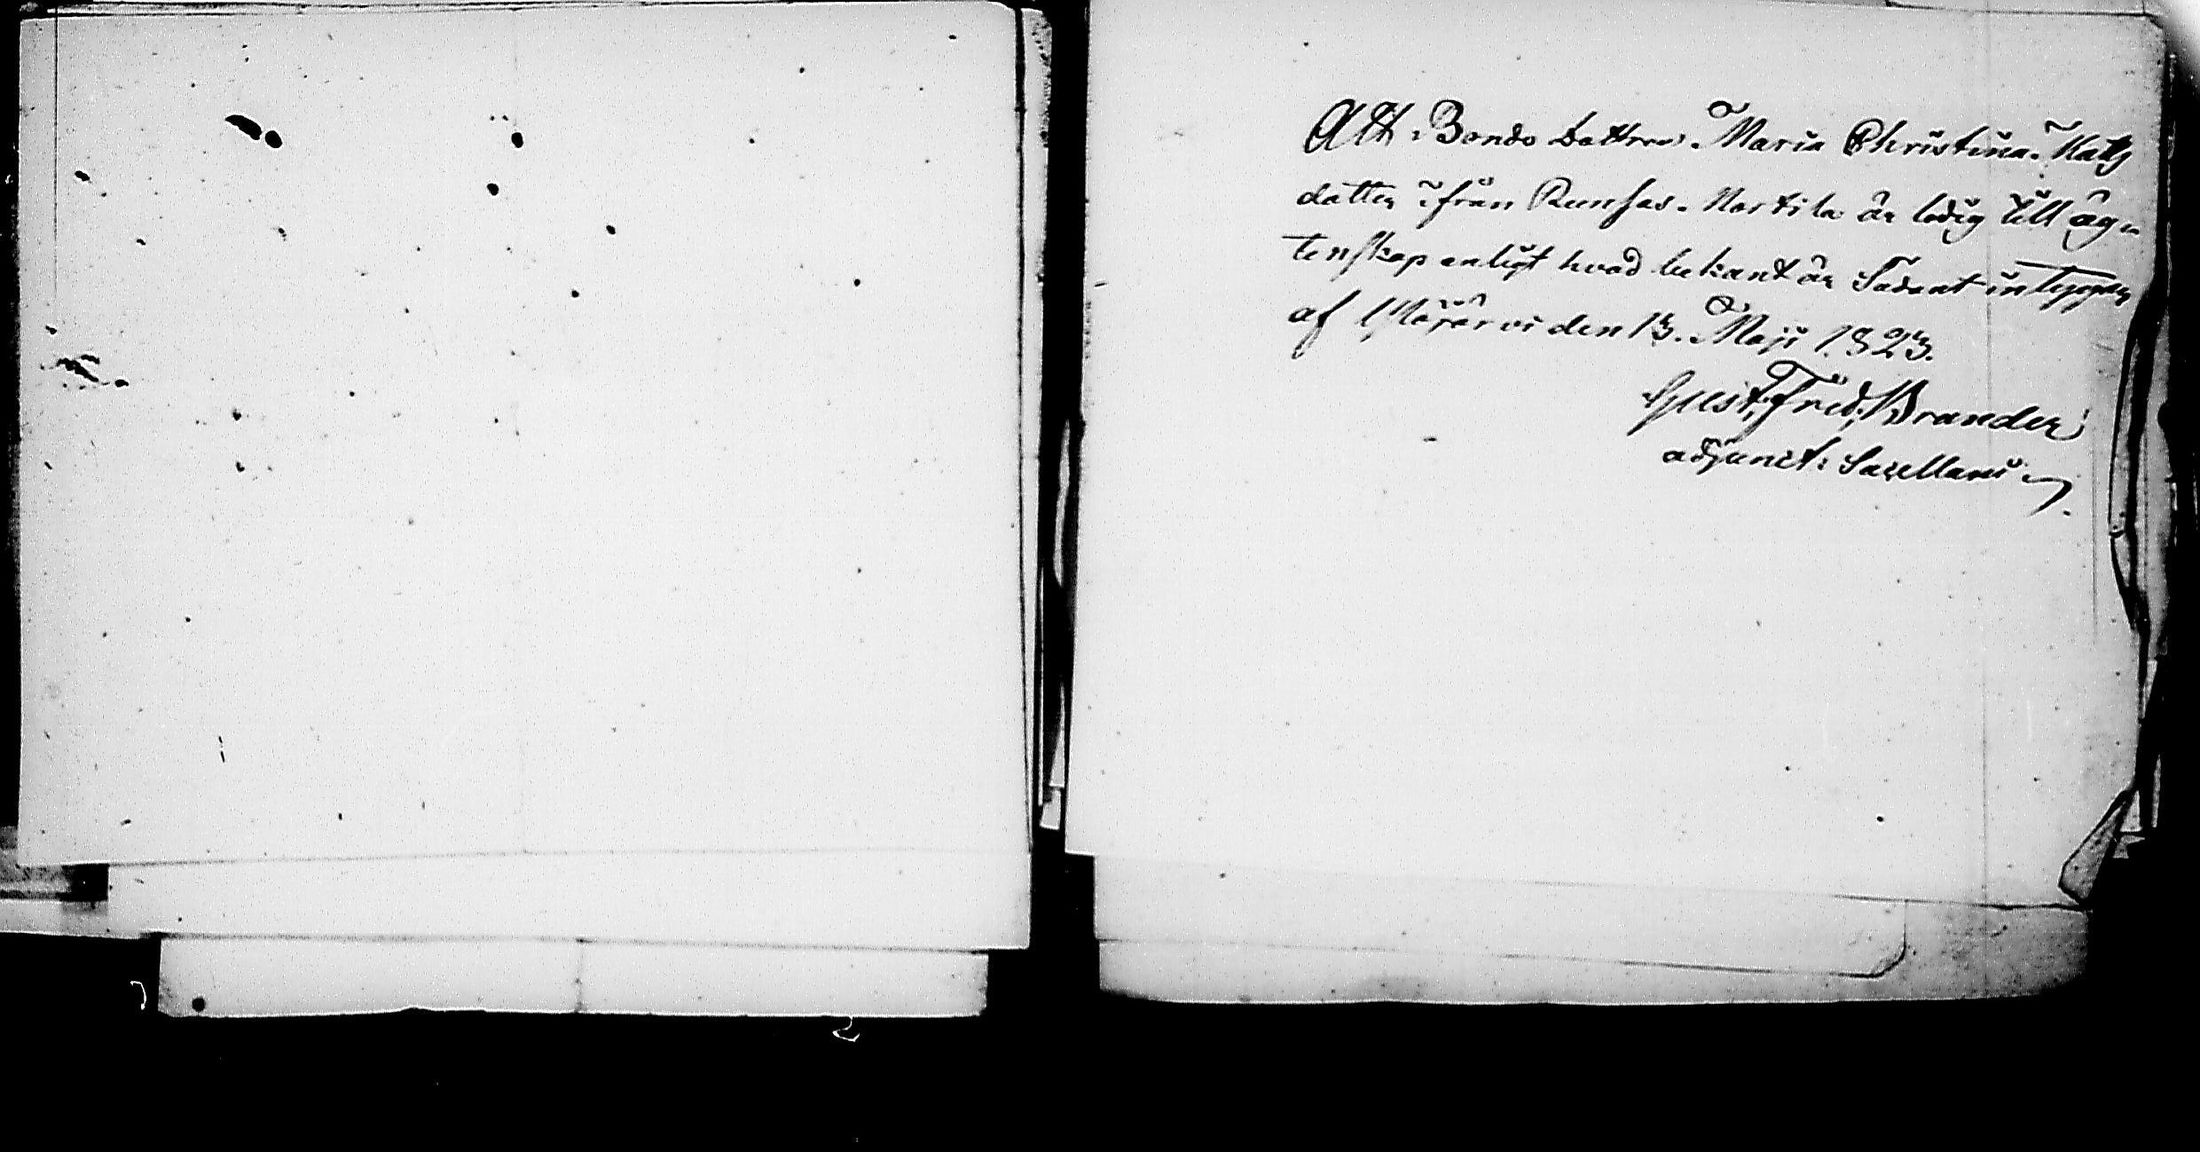 Att Bonde dottren Maria Christina Matts
dotter ifrån Runsas. Mortila är ledig till äg„
tenskap enligt hvad bekant är Sådant intygar
af Ylöjärvi den 13. Maji 1823.
Gust. Fred. Brander
adjunct: Sacellani